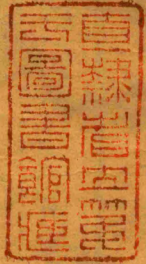 直隸省立第
圖書館藏